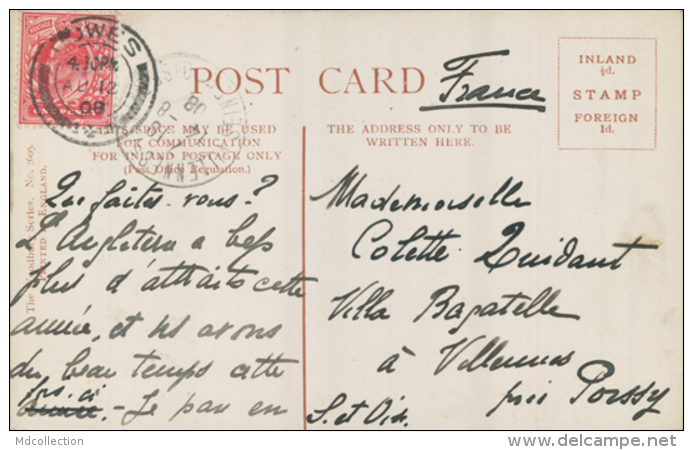 POST CARD
France
INLAND
½d.
STAMP
FOREIGN
1d.
THIS SPACE MAY BE USED
FOR COMMUNICATION
FOR INLAND POSTAGE ONLY
(Post Office Regulation.)
THE ADDRESS ONLY TO BE
WRITTEN HERE.
The Woodbury Series. No. 2605.
PRINTED IN ENGLAND.
4.30PM
AU 12
08
Que faites-vous?
L'Angleterre a
plus d'attraits cette
année, et ns avons
du beau temps cette
fois-ci
année. - Je pars en
Mademoiselle
Colette Quidant
Villa Bagatelle
à Villennes
près Poissy
S. et Oise.
Mdcollection